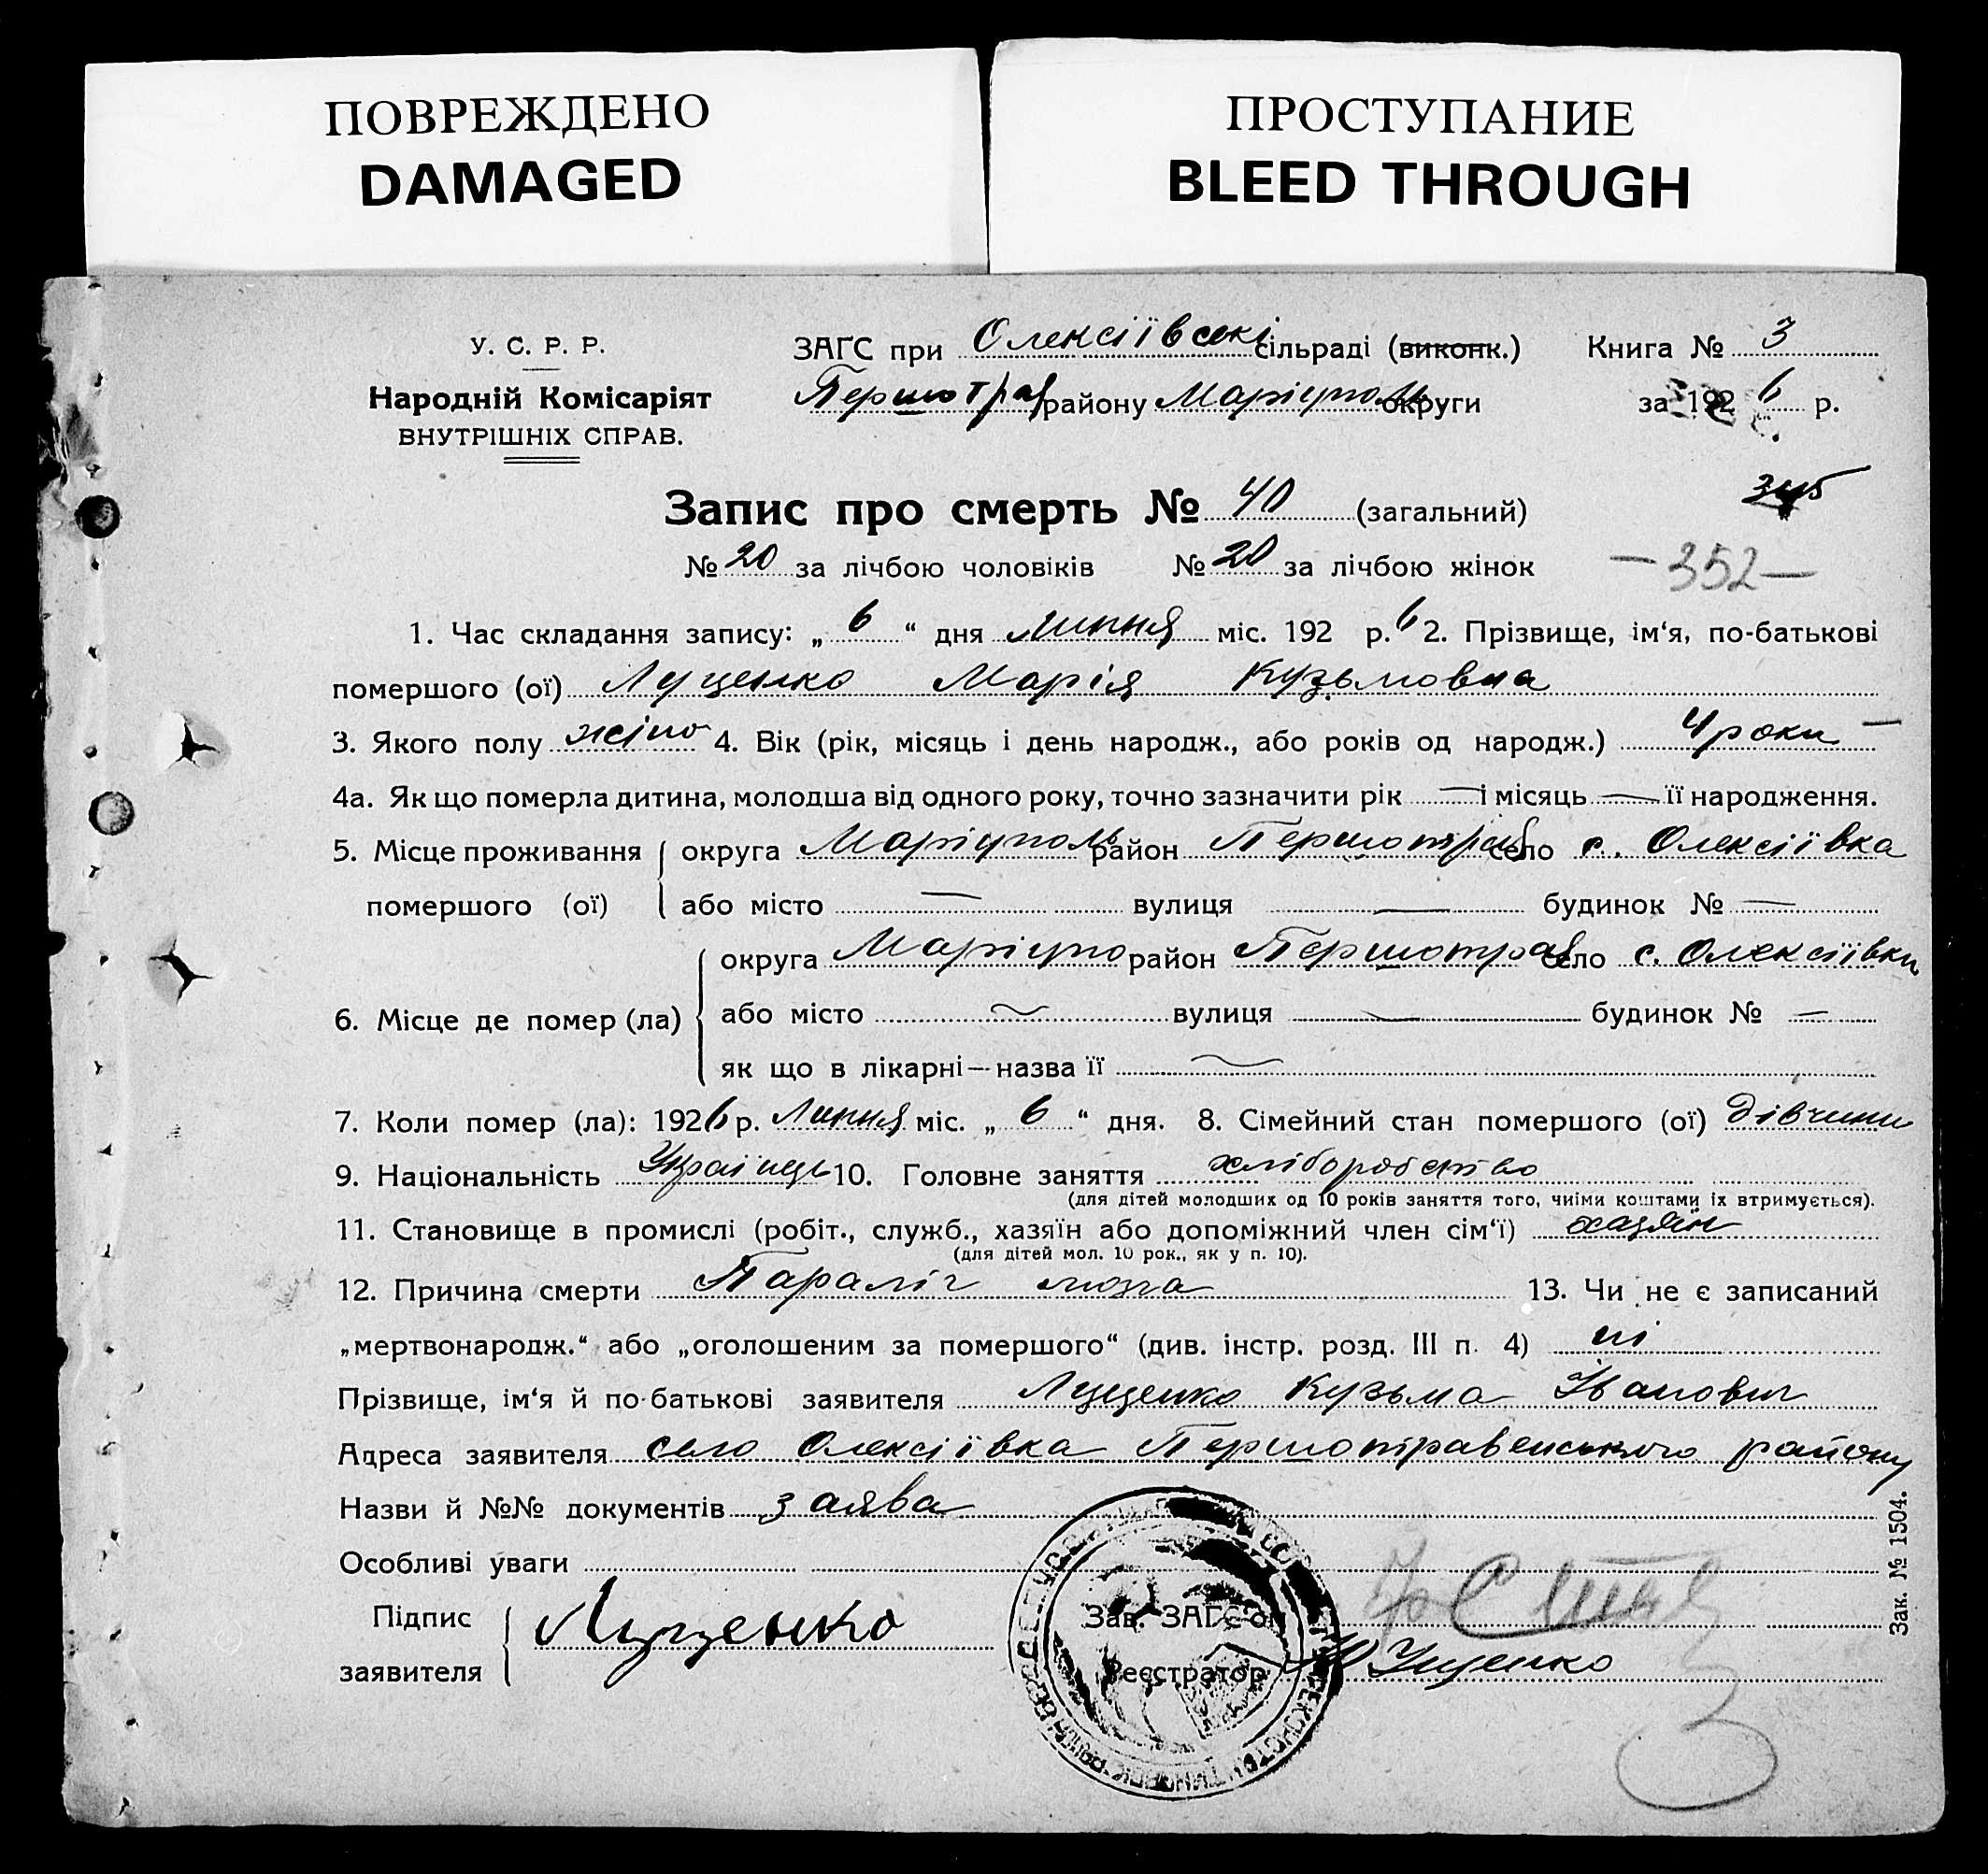 ПОВРЕЖДЕНО
DAMAGED
ПРОСТУПАНИЕ
BLEED THROUGH
У. С. Р. Р.
Народній Комісаріят
ВНУТРІШНІХ СПРАВ.
ЗАГС при Олексіївські сільраді (виконк.) Книга № 3
Першотрав району Маріуполь округи за 1926 р.
Запис про смерть № 40 (загальний)
345
№ 20 за лічбою чоловіків № 20 за лічбою жінок
—352—
1. Час складання запису: „ 6 “ дня Липня міс. 192 р. 6 2. Прізвище, ім‘я, по-батькові
помершого (ої) Луценко Марія Кузьмовна
3. Якого полу жіно 4. Вік (рік, місяць і день народж., або років од народж.) 4 роки —
4а. Як що померла дитина, молодша від одного року, точно зазначити рік — і місяць — її народження.
5. Місце проживання помершого (ої) округа Маріуполь район Першотрав село с. Олексіївка
або місто — вулиця — будинок № —
6. Місце де помер (ла) округа Маріупо район Першотрав село с. Олексіївки
або місто — вулиця — будинок № —
як що в лікарні—назва її —
7. Коли помер (ла): 1926 р. Липня міс. „ 6 “ дня. 8. Сімейний стан помершого (ої) дівчини
9. Національність Українець 10. Головне заняття хліборобство
(для дітей молодших од 10 років заняття того, чиїми коштами їх втримується).
11. Становище в промислі (робіт., служб., хазяїн або допоміжний член сім‘ї) хазяїн
(для дітей мол. 10 рок., як у п. 10).
12. Причина смерти Параліч мозга 13. Чи не є записаний
„мертвонародж.“ або „оголошеним за помершого“ (див. інстр. розд. III п. 4) ні
Прізвище, ім‘я й по-батькові заявителя Луценко Кузьма Іванович
Адреса заявителя село Олексіївка Першотравенського району
Назви й №№ документів заява
Особливі уваги
Підпис заявителя Луценко
Зав. ЗАГС‘ом
Реєстратор Ющенко
Зак. № 1504.